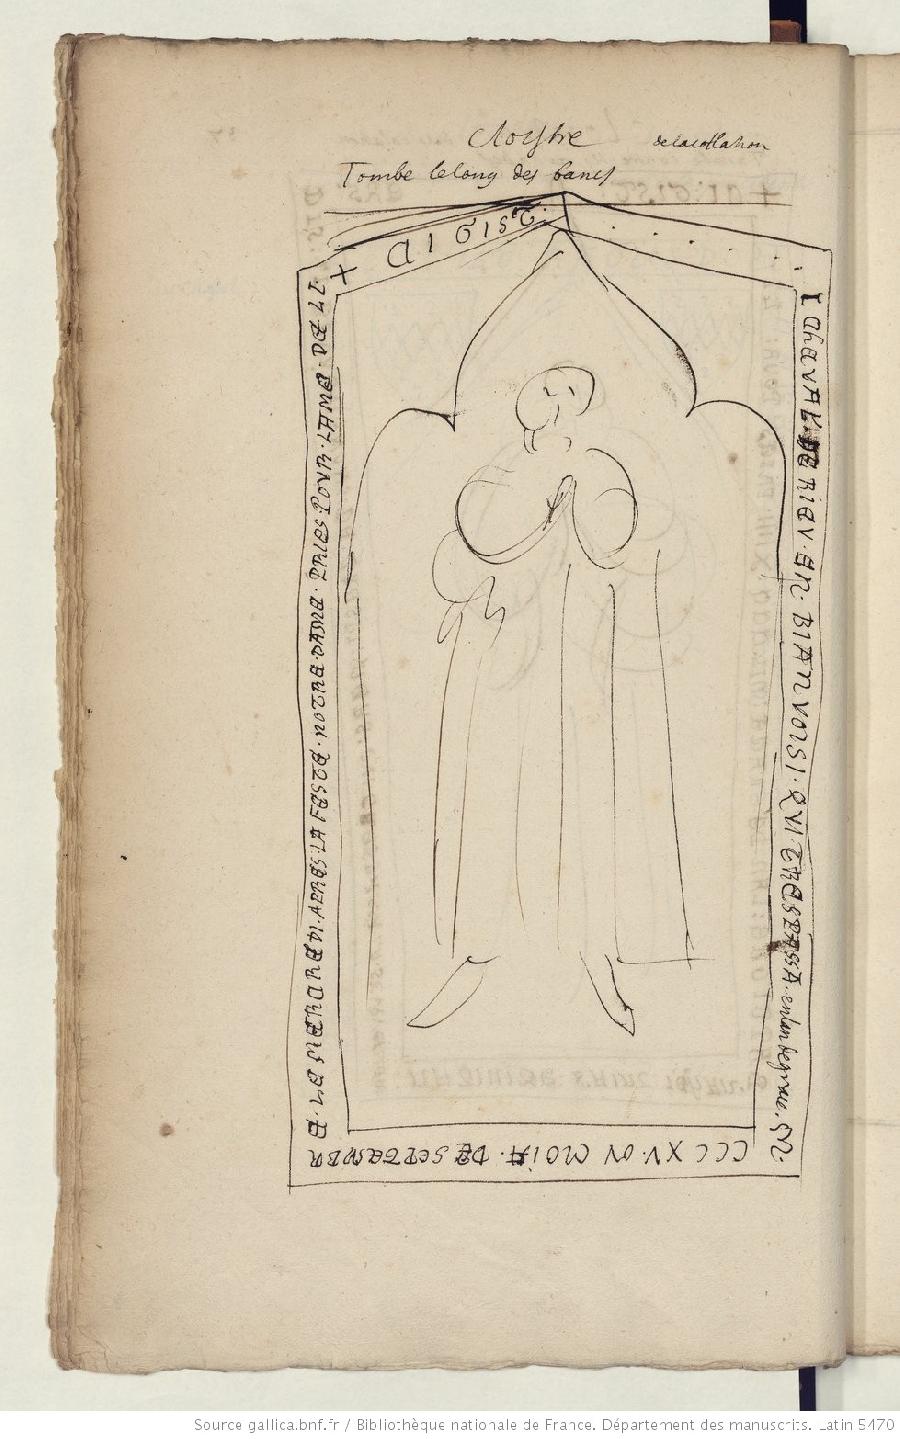 Cloystre de la collation
Tombe le long des bancs
+ CI GIST . . . . . .
Chaval . de rieu . en . bian vonsi . qui trespassa . en lan de grace . M .
CCC XV . ou mois . de septembr
e . le mercredi . apres la feste . notre dame . pries pour . lame . de li
Source gallica.bnf.fr / Bibliothèque nationale de France. Département des manuscrits. Latin 5470